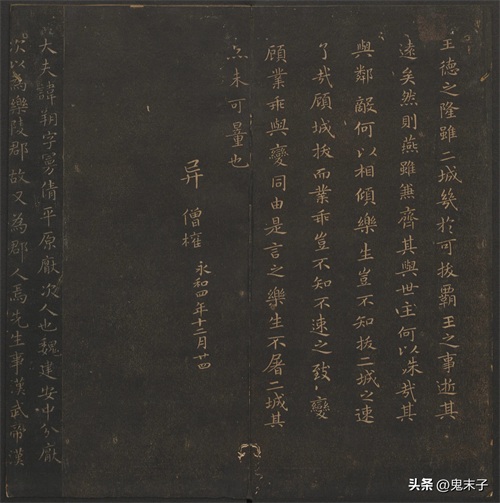 王德之隆雖二城幾於可拔霸王之事逝其
遠矣然則燕雖兼齊其與世主何以殊哉其
與鄰敵何以相傾樂生豈不知拔二城之速
了哉顧城拔而業乖豈不知不速之致變
顧業乖與變同由是言之樂生不屠二城其
亦未可量也
异僧權
永和四年十二月廿四
大夫諱朔字曼倩平原厭次人也魏建安中分厭
次以為樂陵郡故又為郡人焉先生事漢武帝漢
头条 @鬼末子